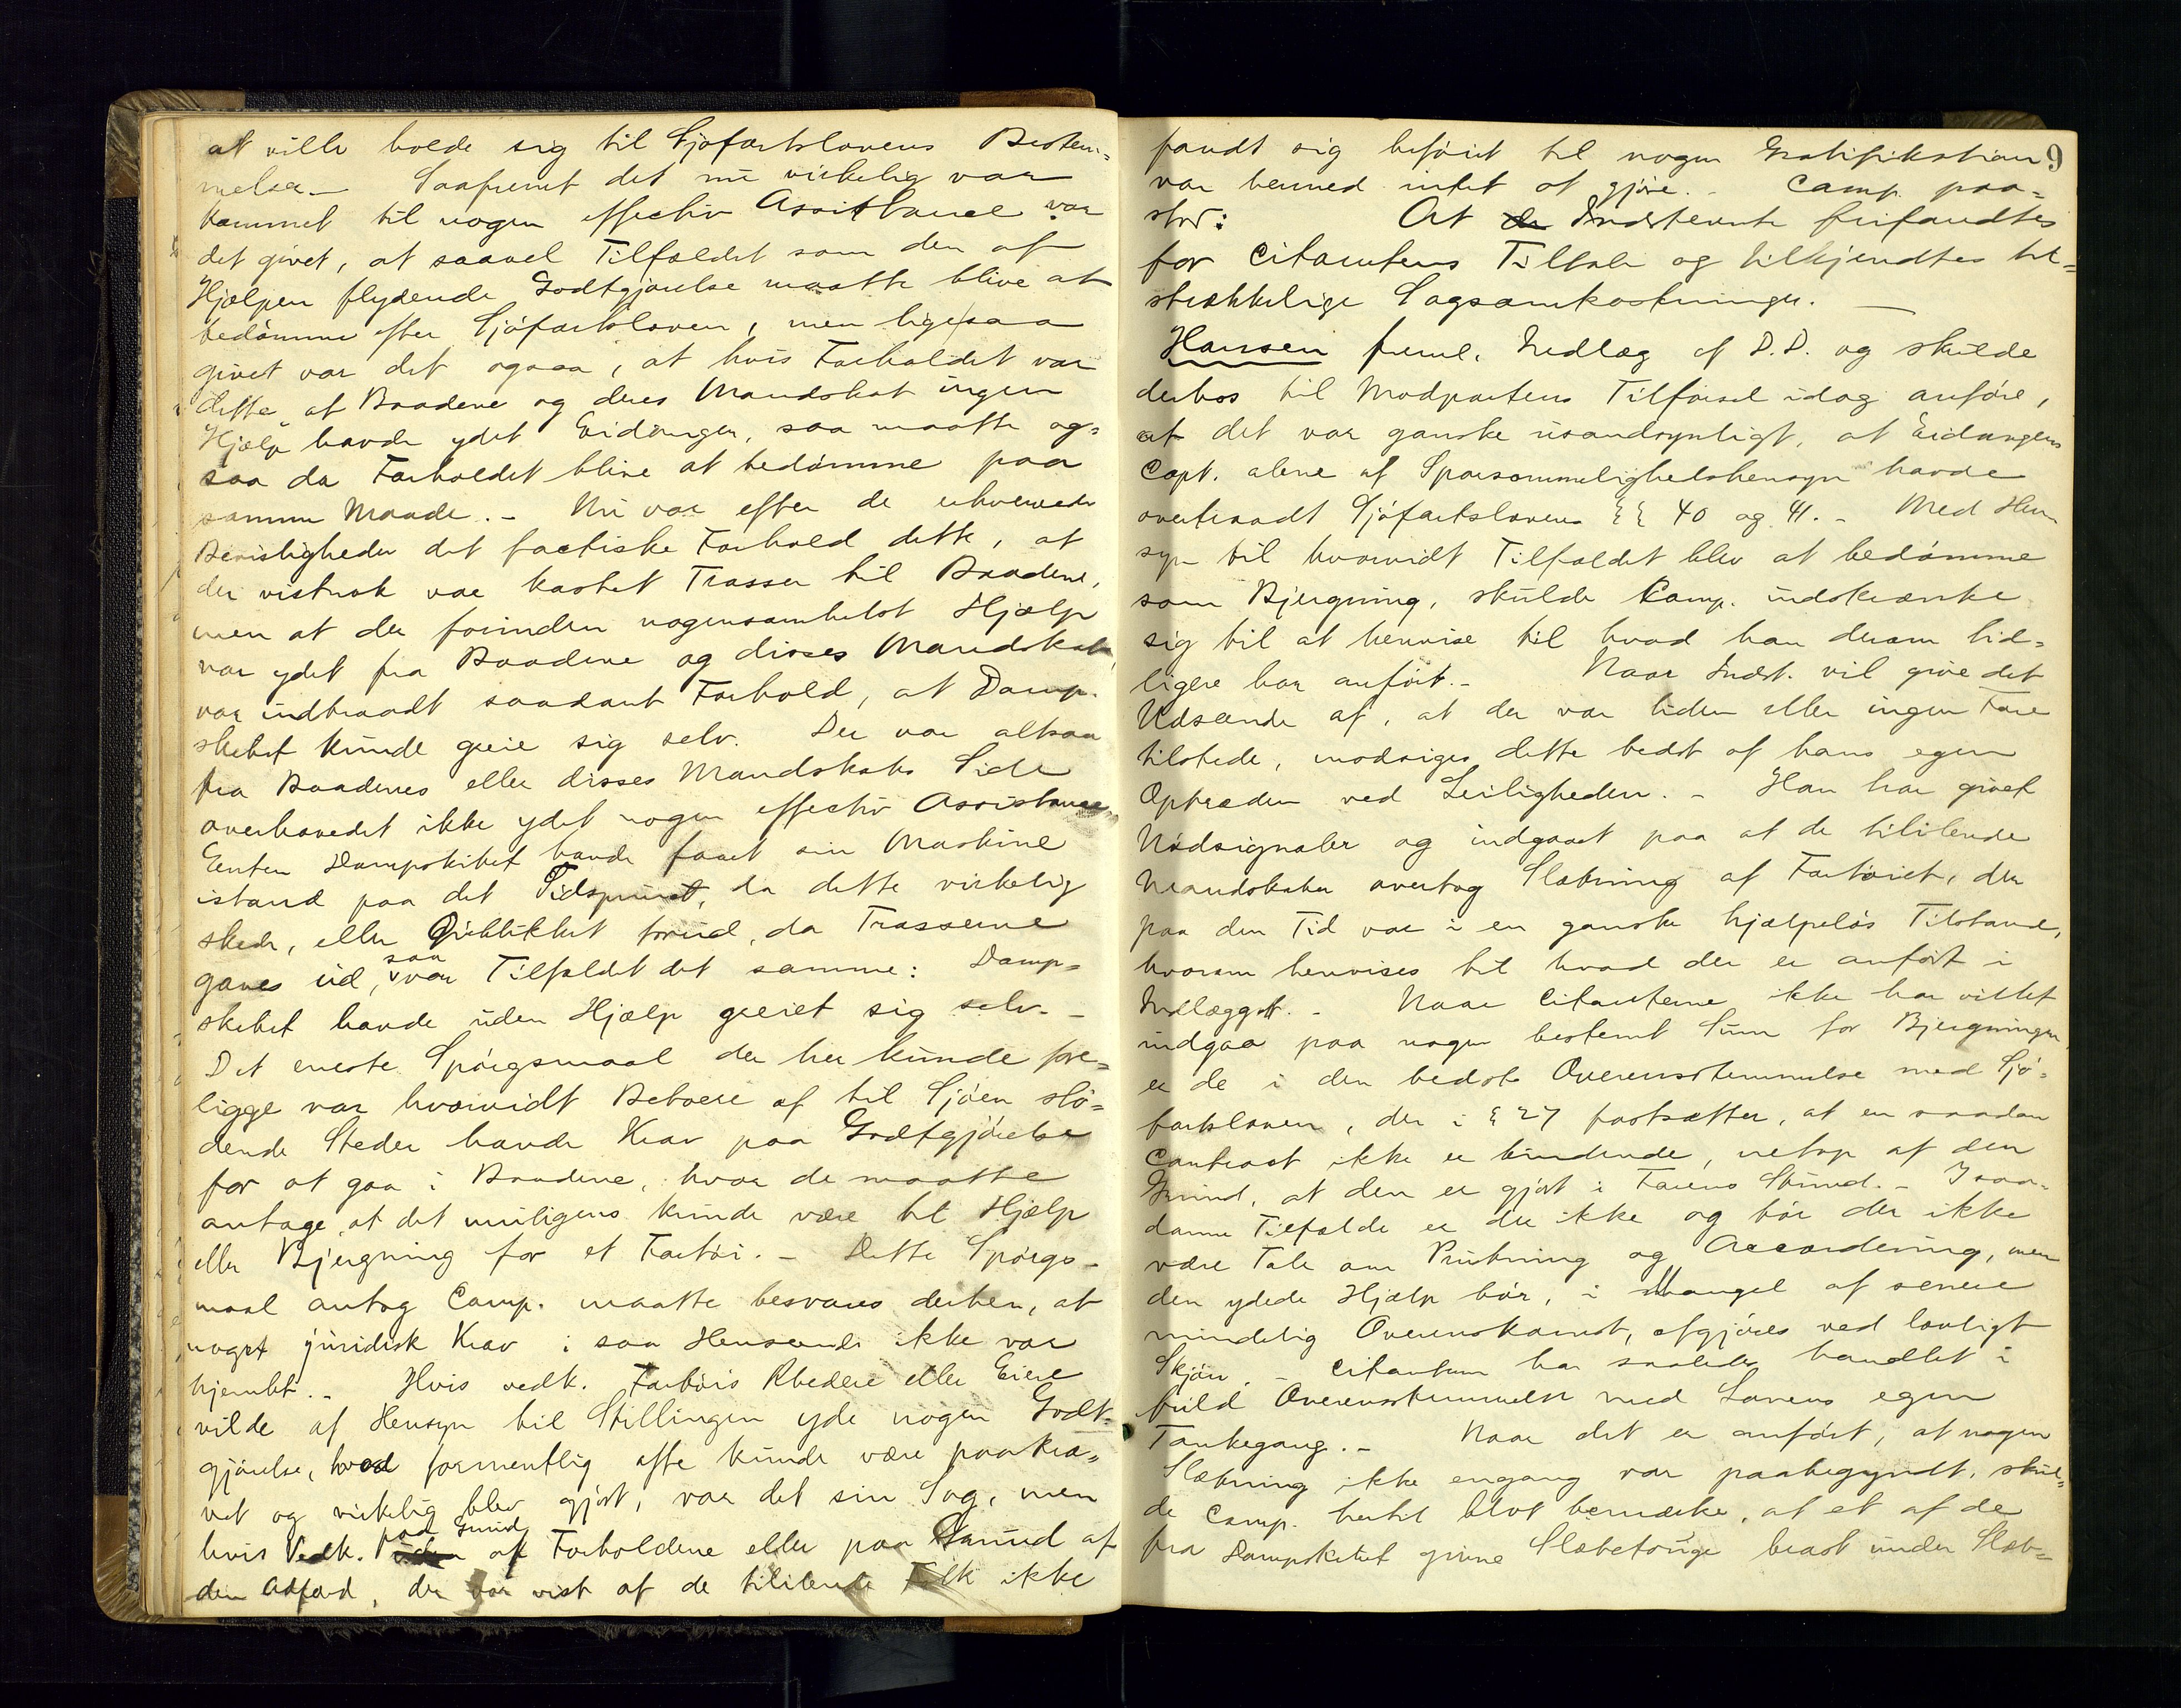 at ville holde sig til Sjøfartslovens Bestem-
melser.- Saafremt det nu virkelig var
kommet til nogen effectiv Assistance var
det givet, at saavel Tilfældet som den af
Hjælpen flydende Godtgjørelse maatte blive at
bedømme efter Sjøfartsloven, men ligesaa
givet var det ogsaa, at hvis Forholdet var
dette, at Baadene og deres Mandskab ingen
Hjælp havde ydet Eidanger, saa maatte og-
saa da Forholdet blive at bedømme paa
samme Maade.- Nu var efter de erhvervede
Bevisligheder det factiske Forhold dette, at
der vistnok var kastet Trosser til Baadene,
men at der forinden nogensomhelst Hjælp
var ydet fra Baadene og disses Mandskab,
var indtraadt saadant Forhold, at Damp-
skibet kunde greie sig selv. Der var altsaa
fra Baadenes eller disses Mandskabs Side
overhovedet ikke ydet nogen effectiv Assistance.
Enten Dampskibet havde faaet sin Maskine
istand paa det Tidspunct, da dette virkelig
skede, eller Øieblikket forud, da Trosserne
gaves ud, saa var Tilfældet det samme: Damp-
skibet havde uden Hjælp greiet sig selv.-
Det eneste Spørgsmaal der her kunde fore-
ligge var hvorvidt Beboere af til Sjøen stø-
dende Steder havde Krav paa Godtgjørelse
for at gaa i Baadene, hvor de maatte
antage, at det muligens kunde være til Hjælp
eller Bjergning for et Fartøi.- Dette Spørgs-
maal antog Comp. maatte besvares derhen, at
noget juridisk Krav i saa Henseende ikke var
hjemlet.- Hvis vedk. Fartøis Rhedere eller Eiere
vilde af Hensyn til Stillingen yde nogen Godt-
gjørelse, hvad formentlig ofte kunde være paakræ-
vet og virkelig blev gjort, var det sin Sag, men
hvis Vedk. paa Grund af Forholdene eller paa Grund af
den Adfærd, der var vist af de tililende Folk ikke
fandt sig beføiet til nogen Gratifikation 9
var hermed intet at gjøre.- Comp. paa-
stod: At Indstevnte frifandtes
for Citantens Tiltale og tilkjendtes til-
strækkelige Sagsomkostninger.
Hansen freml. Indlæg af D.D. og skulde
derhos til Modpartens Tilførsel idag anføre,
at det var ganske usandsynligt, at Eidangers
Capt. alene af Sparsommelighedshensyn havde
overtraadt Sjøfartslovens §§ 40 og 41.- Med Hen-
syn til hvorvidt Tilfældet blev at bedømme
som Bjergning, skulde Comp. indskrænke
sig til at henvise til hvad han derom tid-
ligere har anført.- Naar Indst. vil give det
Udseende af, at der var liden eller ingen Fare
tilstede, modsiges dette bedst af hans egen
Optræden ved Leiligheden.- Han har givet
Nødsignaler og indgaaet paa at de tililende
Mandskaber overtog Slæbning af Fartøiet, der
paa den Tid var i en ganske hjælpeløs Tilstand,
hvorom henvises til hvad der er anført i
Indlægget.- Naar Citanterne ikke har villet
indgaa paa nogen bestemt Sum for Bjergningen,
er de i den bedste Overensstemmelse med Sjø-
fartsloven, der i § 27 fastsætter, at en saadan
Contract ikke er bindende, netop af den
Grund, at den er gjort i Farens Stund.- I saa-
danne Tilfælde er der ikke og bør der ikke
være Tale om Prutning og Accordering, men
den ydede Hjælp bør, i Mangel af senere
mindelig Overenskomst, afgjøres ved lovligt
Skjøn.- Citanterne har saaledes handlet i
fuld Overensstemmelse med Lovens egen
Tankegang.- Naar det er anført, at nogen
Slæbning ikke engang var paabegyndt, skul-
de Comp. hertil blot bemærke, at et af de
fra Dampskibet givne Slæbetouge brast under Slæb-